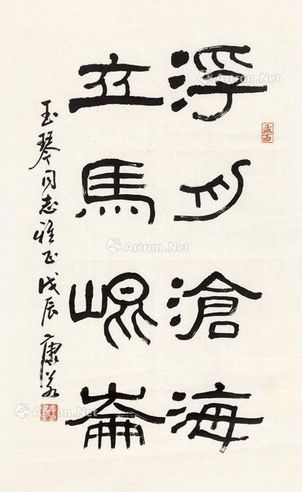 浮舟滄海
立馬崐崙
玉琴同志雅正戊辰康
Artron.Net
Artron.Net
Artron.Net
Artron.Net